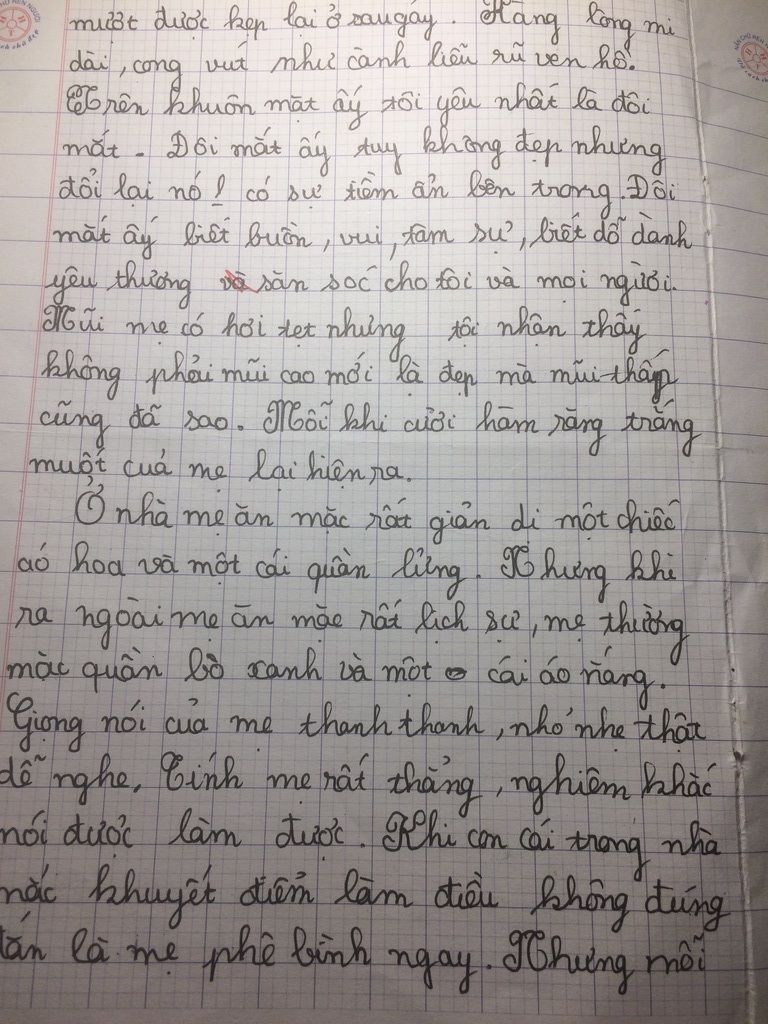 mượt được kẹp lại ở sau gáy. Hàng lông mi
dài, cong vút như cành liễu rũ ven hồ.
Trên khuôn mặt ấy tôi yêu nhất là đôi
mắt. Đôi mắt ấy tuy không đẹp nhưng
đổi lại nó có sự tiềm ẩn bên trong. Đôi
mắt ấy biết buồn, vui, tâm sự, biết dỗ dành
yêu thương và săn soc cho tôi và mọi người.
Mũi mẹ có hơi tẹt nhưng tôi nhận thấy
không phải mũi cao mới là đẹp mà mũi thấp
cũng đã sao. Mỗi khi cười hàm răng trắng
muốt cuả mẹ lại hiện ra.
Ở nhà mẹ ăn mặc rất giản dị một chiếc
aó hoa và một cái quần lửng. Nhưng khi
ra ngoài mẹ ăn mặc rất lịch sự, mẹ thường
mặc quần bò xanh và một cái áo nắng.
Giọng nói của mẹ thanh thanh, nhỏ nhẹ thật
dễ nghe. Tính mẹ rất thẳng, nghiêm khắc
nói được làm được. Khi con cái trong nhà
mắc khuyết điểm làm điều không đúng
đắn là mẹ phê bình ngay. Nhưng mỗi